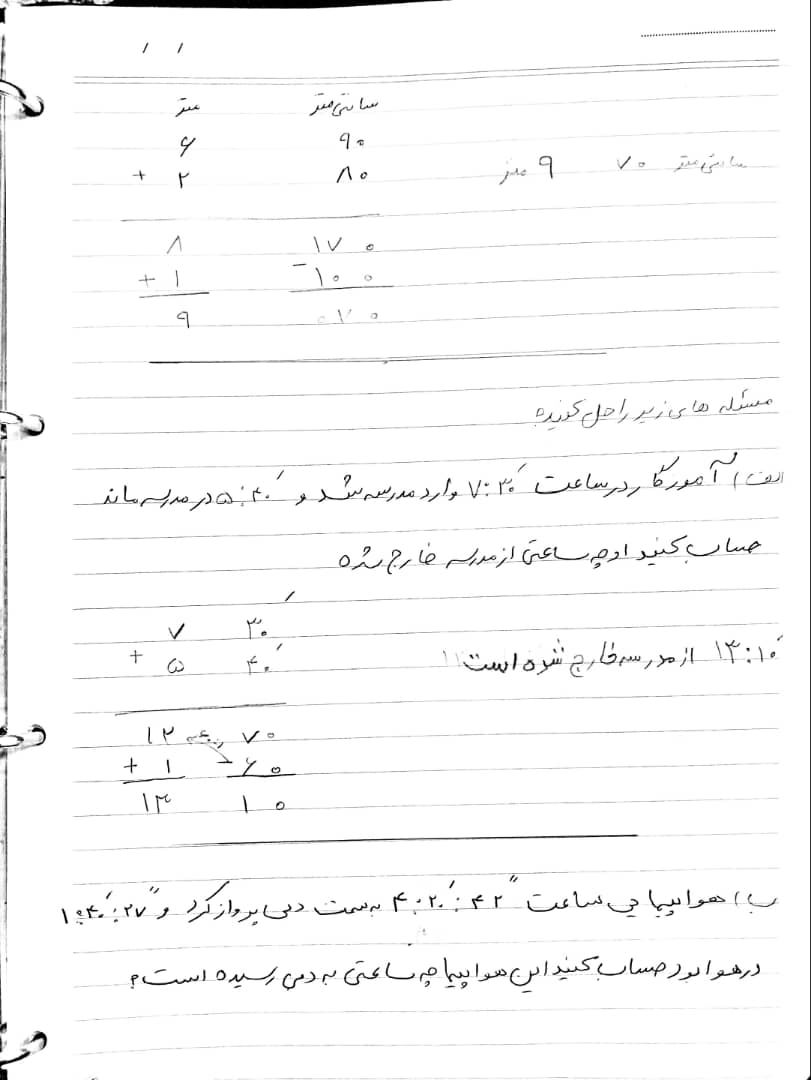 / /
متر سانتی‌متر
۶ ۹۰
+ ۲ ۸۰
۹ متر ۷۰ سانتی‌متر
۸ ۱۷۰
+ ۱ - ۱۰۰
۹ ۰۷۰
مسئله های زیر را حل کونید
الف) آموزگار در ساعت ۷:۳۰′ وارد مدرسه شد و ۵:۴۰′ در مدرسه ماند
حساب کنید او چه ساعتی از مدرسه خارج شده
۷ ۳۰′
+ ۵ ۴۰′
۱۳:۱۰′ از مدرسه خارج شده است
۱۲ ۷۰
+ ۱ - ۶۰
۱۳ ۱۰
ب) هواپیما یی ساعت ۴:۲۰′:۴۲″ به سمت دبی پرواز کرد و ۱:۴۰′:۲۷″
در هوا بود حساب کنید این هواپیما چه ساعتی به دبی رسیده است؟